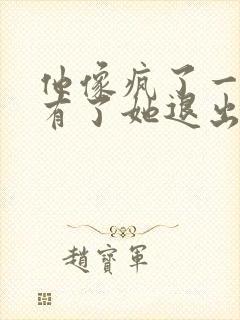 他像疯了一
有了她退出
趙寶軍